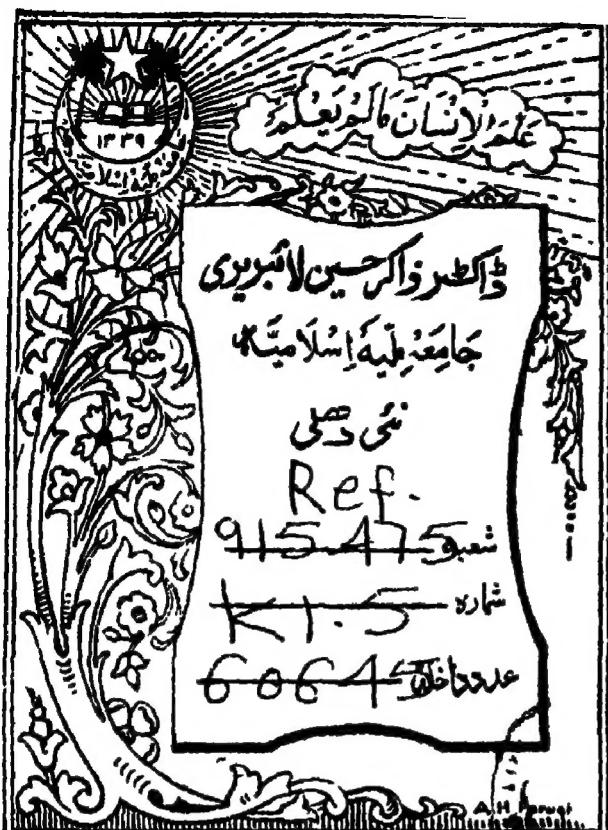 عَلَّمَ الْإِنْسَانَ مَا لَمْ يَعْلَمْ
١٣٣٩
ڈاکٹر ذاکر حسین لائبریری
جَامِعَہ مِلّیَہ اِسْلَامیَّہ
نئی دھلی
Ref.
شعبہ 915.475
شمارہ K1.5
عدد داخلہ 6064
A.H.